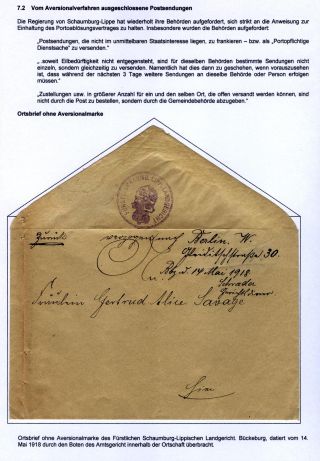 7.2 Vom Aversionalverfahren ausgeschlossene Postsendungen
Die Regierung von Schaumburg-Lippe hat wiederholt ihre Behörden aufgefordert, sich strikt an die Anweisung zur
Einhaltung des Portoablösungsvertrages zu halten. Insbesondere wurden die Behörden aufgefordert:
„Postsendungen, die nicht im unmittelbaren Staatsinteresse liegen, zu frankieren – bzw. als „Portopflichtige
Dienstsache" zu versenden."
„ soweit Eilbedürftigkeit nicht entgegensteht, sind für dieselben Behörden bestimmte Sendungen nicht
einzeln, sondern gleichzeitig zu versenden. Namentlich hat dies dann zu geschehen, wenn vorauszusehen
ist, dass während der nächsten 3 Tage weitere Sendungen an dieselbe Behörde oder Person erfolgen
müssen."
„Zustellungen usw. in größerer Anzahl für ein und den selben Ort, die offen versandt werden können, sind
nicht durch die Post zu bestellen, sondern durch die Gemeindebehörde abzugeben."
Ortsbrief ohne Aversionalmarke
Zurück
verzogen nach Berlin. W.
30.
Bbg. d 14 Mai 1918
Schrader
Gerichtsdiener
Fräulein Gertrud Alice Savage
Hier
Ortsbrief ohne Aversionalmarke des Fürstlichen Schaumburg-Lippischen Landgericht. Bückeburg, datiert vom 14.
Mai 1918 durch den Boten des Amtsgericht innerhalb der Ortschaft überbracht.